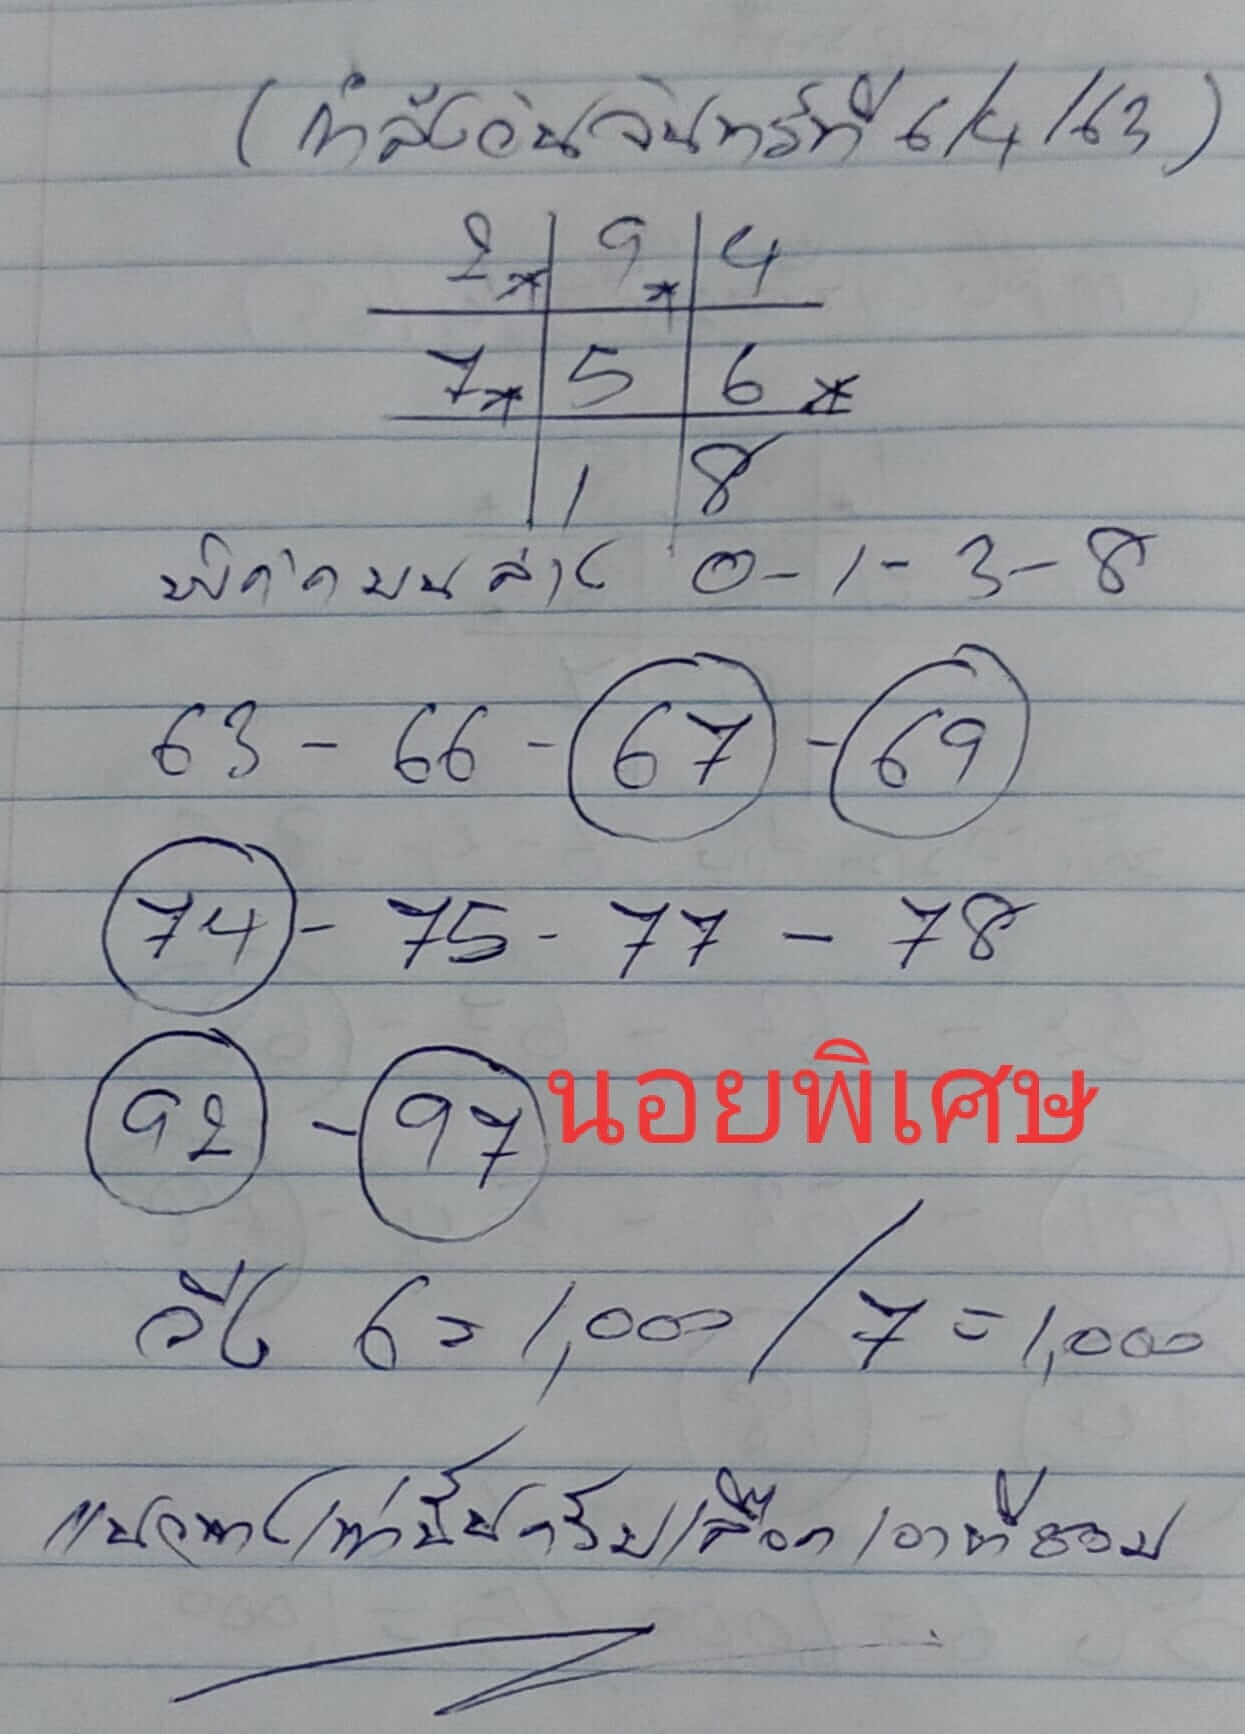 (กำลังวันจันทร์ที่ 6/4/63)
2* 9* 4
7* 5 6*
1 8
พิกัดบนล่าง 0-1-3-8
63 - 66 - 67 - 69
74 - 75 - 77 - 78
92 - 97 นอยพิเศษ
วิ่ง 6 = 1,000 / 7 = 1,000
แนวทางเท่านั้นครับเลือกเอาที่ชอบ